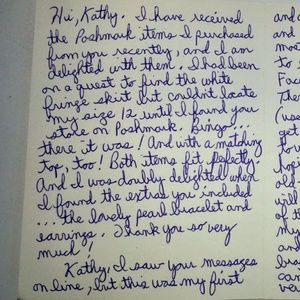 Hi, Kathy. I have received
the Poshmark items I purchased
from you recently, and I am
delighted with them. I had been
on a quest to find the white
fringe skirt but couldn't locate
my size 12 until I found your
store on Poshmark. Bingo...
there it was! And with a matching
top, too! Both items fit perfectly.
And I was doubly delighted when
I found the extras you included
... the lovely pearl bracelet and
earrings. Thank you so very
much!
Kathy, I saw your messages
online, but this was my first
and
and
mod
to
Fac
The
(use
get
hop
old
will
of th
my
and
bra
can
ver